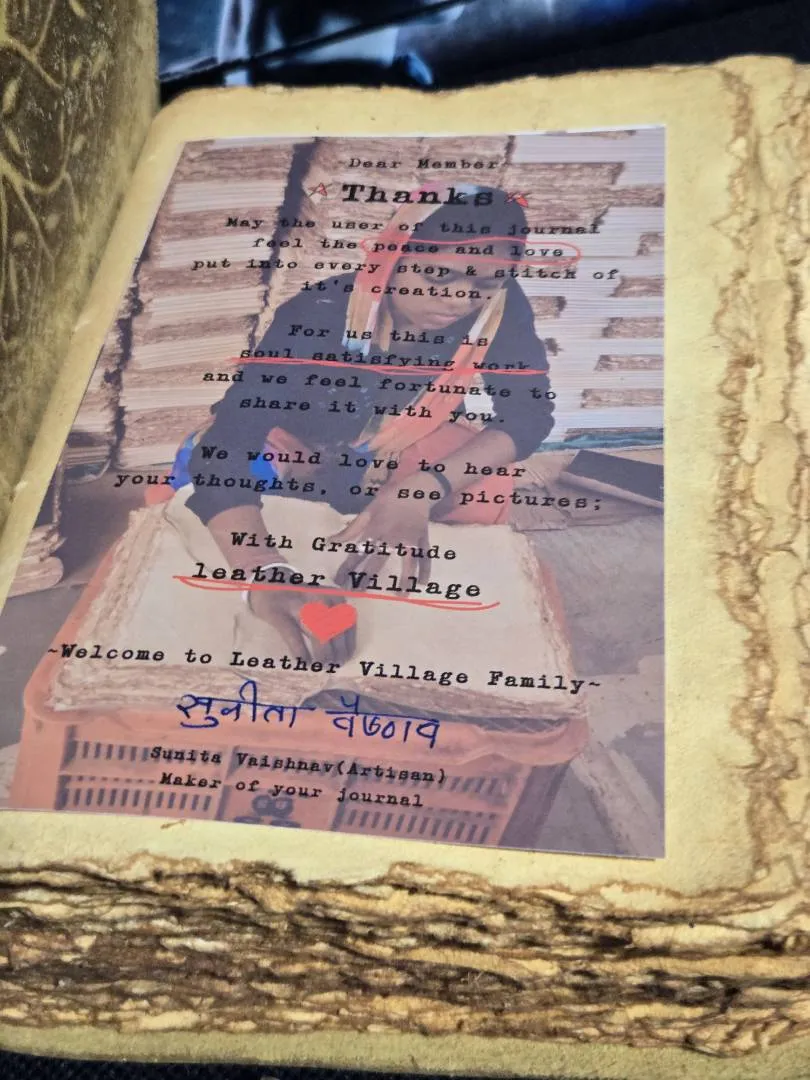 ~Dear Member~
Thanks
May the user of this journal
feel the peace and love
put into every step & stitch of
it's creation.
For us this is
soul satisfying work
and we feel fortunate to
share it with you.
We would love to hear
your thoughts, or see pictures;
With Gratitude
leather Village
~Welcome to Leather Village Family~
सुनीता वैष्णव
Sunita Vaishnav(Artisan)
Maker of your journal